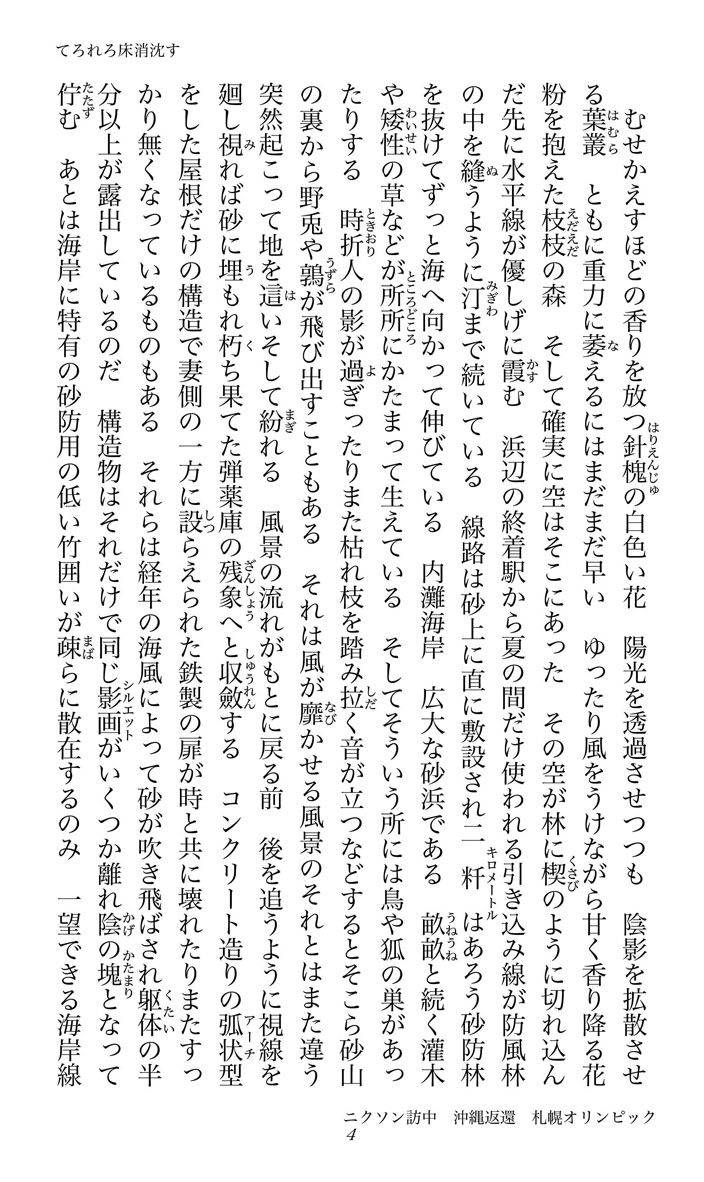 てろれろ床消沈す
むせかえすほどの香りを放つ針槐の白色い花　陽光を透過させつつも　陰影を拡散させ
る葉叢　ともに重力に萎えるにはまだまだ早い　ゆったり風をうけながら甘く香り降る花
粉を抱えた枝枝の森　そして確実に空はそこにあった　その空が林に楔のように切れ込ん
だ先に水平線が優しげに霞む　浜辺の終着駅から夏の間だけ使われる引き込み線が防風林
の中を縫うように汀まで続いている　線路は砂上に直に敷設され二粁はあろう砂防林
を抜けてずっと海へ向かって伸びている　内灘海岸　広大な砂浜である　畝畝と続く灌木
や矮性の草などが所所にかたまって生えている　そしてそういう所には鳥や狐の巣があっ
たりする　時折人の影が過ぎったりまた枯れ枝を踏み拉く音が立つなどするとそこら砂山
の裏から野兎や鶉が飛び出すこともある　それは風が靡かせる風景のそれとはまた違う
突然起こって地を這いそして紛れる　風景の流れがもとに戻る前　後を追うように視線を
廻し視れば砂に埋もれ朽ち果てた弾薬庫の残象へと収斂する　コンクリート造りの弧状型
をした屋根だけの構造で妻側の一方に設らえられた鉄製の扉が時と共に壊れたりまたすっ
かり無くなっているものもある　それらは経年の海風によって砂が吹き飛ばされ躯体の半
分以上が露出しているのだ　構造物はそれだけで同じ影画がいくつか離れ陰の塊となって
佇む　あとは海岸に特有の砂防用の低い竹囲いが疎らに散在するのみ　一望できる海岸線
ニクソン訪中　沖縄返還　札幌オリンピック
4